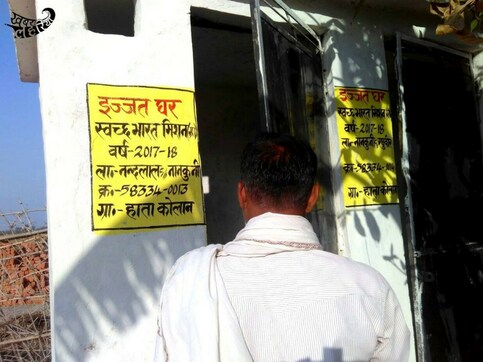 इज्जत घर
स्वच्छ भारत मिशन
वर्ष-2017-18
ला:-नन्दलाल/नानकुनी
क्र:-58334-0013
ग्रा:-हाता कोलान
इज्जत घर
स्वच्छ भारत मिशन
वर्ष-2017-18
58334-
ग्रा:-हाता कोलान